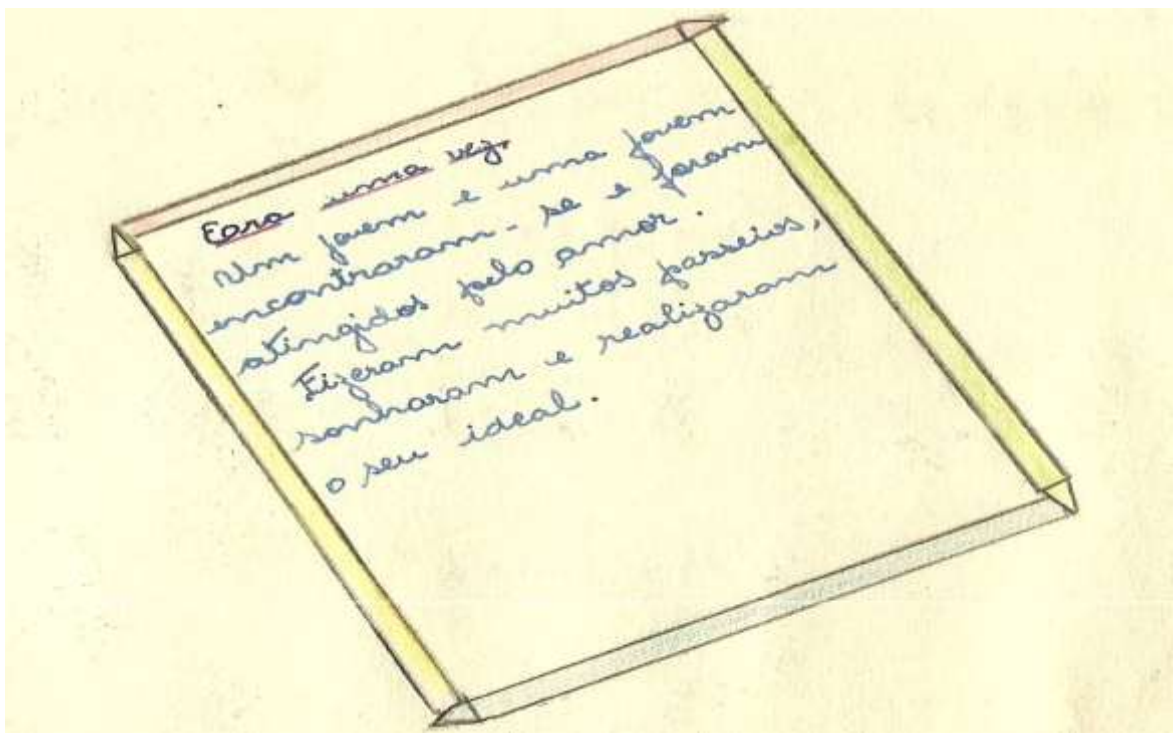 Era uma vez.
Um jovem e uma jovem
encontraram-se e foram
atingidos pelo amor.
Fizeram muitos passeios,
sonharam e realizaram
o seu ideal.